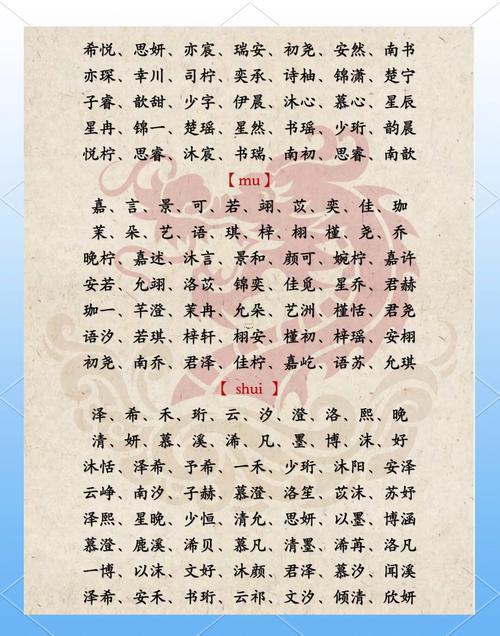 希悦、思妍、亦宸、瑞安、初尧、安然、南书
亦琛、幸川、司柠、奕承、诗柚、锦潇、楚宁
子睿、歆甜、少字、伊晨、沐心、慕心、星辰
星冉、锦一、楚瑶、星然、书瑶、少珩、韵晨
悦柠、思睿、沐宸、书瑞、南初、思睿、南歆
【mu】
嘉、言、景、可、若、翊、苡、奕、佳、珈
茉、朵、艺、语、琪、梓、栩、槿、尧、乔
晚柠、嘉述、沐言、景和、颜可、婉柠、嘉许
安若、允翊、洛苡、锦奕、佳觅、星乔、君赫
珈一、芊澄、茉冉、允朵、艺洲、槿恬、君尧
语汐、若琪、梓轩、栩安、槿初、梓瑶、安栩
初尧、南乔、君泽、佳柠、嘉屹、语苏、允琪
【 shui 】
泽、希、禾、珩、云、汐、澄、洛、熙、晚
清、妍、慕、溪、浠、凡、墨、博、沫、好
沐恬、泽希、予希、一禾、少珩、沐阳、安泽
云峥、南汐、子赫、慕澄、洛笙、苡沫、苏妤
泽熙、星晚、少恒、清允、思妍、以墨、博涵
慕澄、鹿溪、浠贝、慕凡、清墨、浠苒、洛凡
一博、以沫、文好、沐颜、君泽、慕汐、闻溪
泽希、安禾、书珩、云祁、文汐、倾清、欣妍